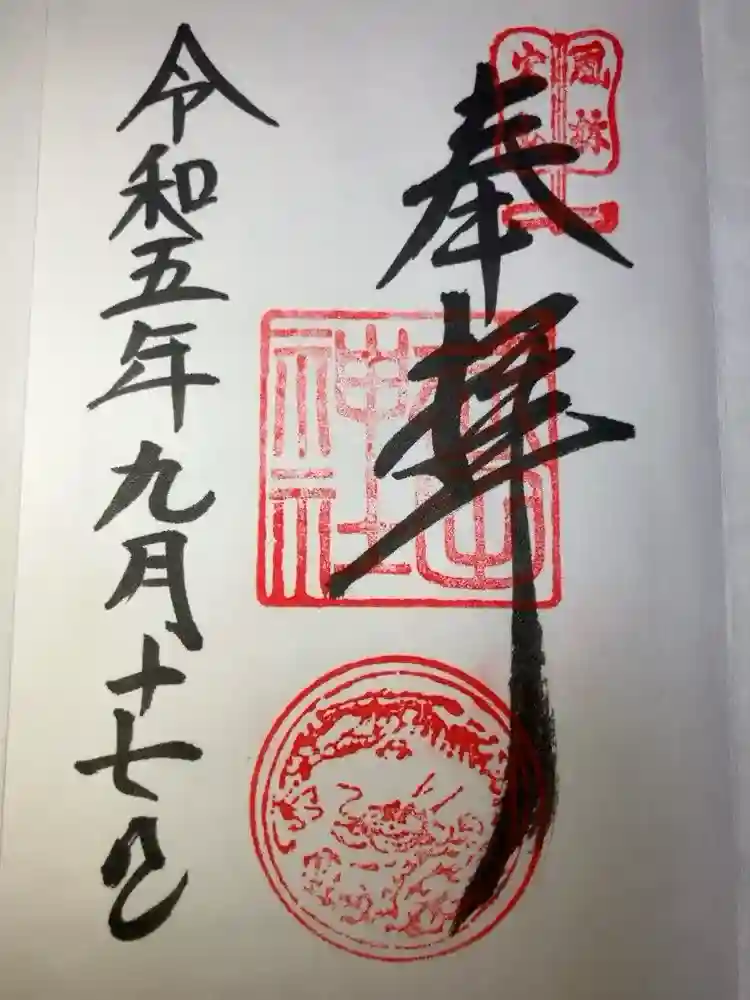 風林
奉拝
神社
令和五年九月十七日